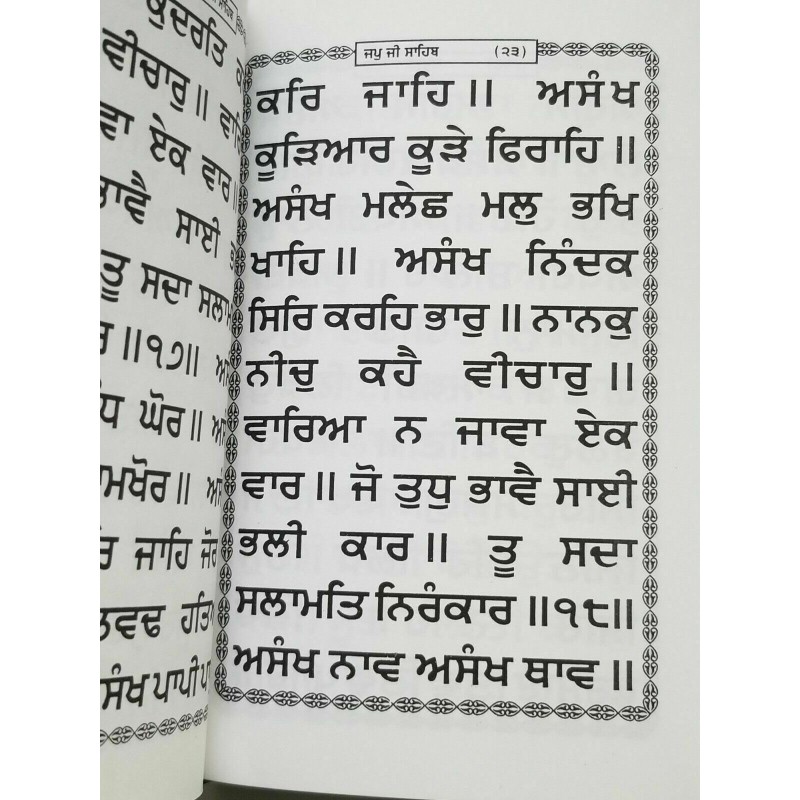 ਕੁਦਰਤਿ
ਵੀਚਾਰੁ ॥
ਏਕ ਵਾਰ ॥
ਭਾਵੈ ਸਾਈ
ਤੂ ਸਦਾ ਸਲਾਮ
॥੧੭॥
ਘੋਰ ॥
ਜਾਹਿ ਜੋਰ
ਪਾਪੀ
ਜਪੁ ਜੀ ਸਾਹਿਬ (੨੩)
ਕਰਿ ਜਾਹਿ ॥ ਅਸੰਖ
ਕੂੜਿਆਰ ਕੂੜੇ ਫਿਰਾਹਿ ॥
ਅਸੰਖ ਮਲੇਛ ਮਲੁ ਭਖਿ
ਖਾਹਿ ॥ ਅਸੰਖ ਨਿੰਦਕ
ਸਿਰਿ ਕਰਹਿ ਭਾਰੁ ॥ ਨਾਨਕੁ
ਨੀਚੁ ਕਹੈ ਵੀਚਾਰੁ ॥
ਵਾਰਿਆ ਨ ਜਾਵਾ ਏਕ
ਵਾਰ ॥ ਜੋ ਤੁਧੁ ਭਾਵੈ ਸਾਈ
ਭਲੀ ਕਾਰ ॥ ਤੂ ਸਦਾ
ਸਲਾਮਤਿ ਨਿਰੰਕਾਰ ॥੧੮॥
ਅਸੰਖ ਨਾਵ ਅਸੰਖ ਥਾਵ ॥